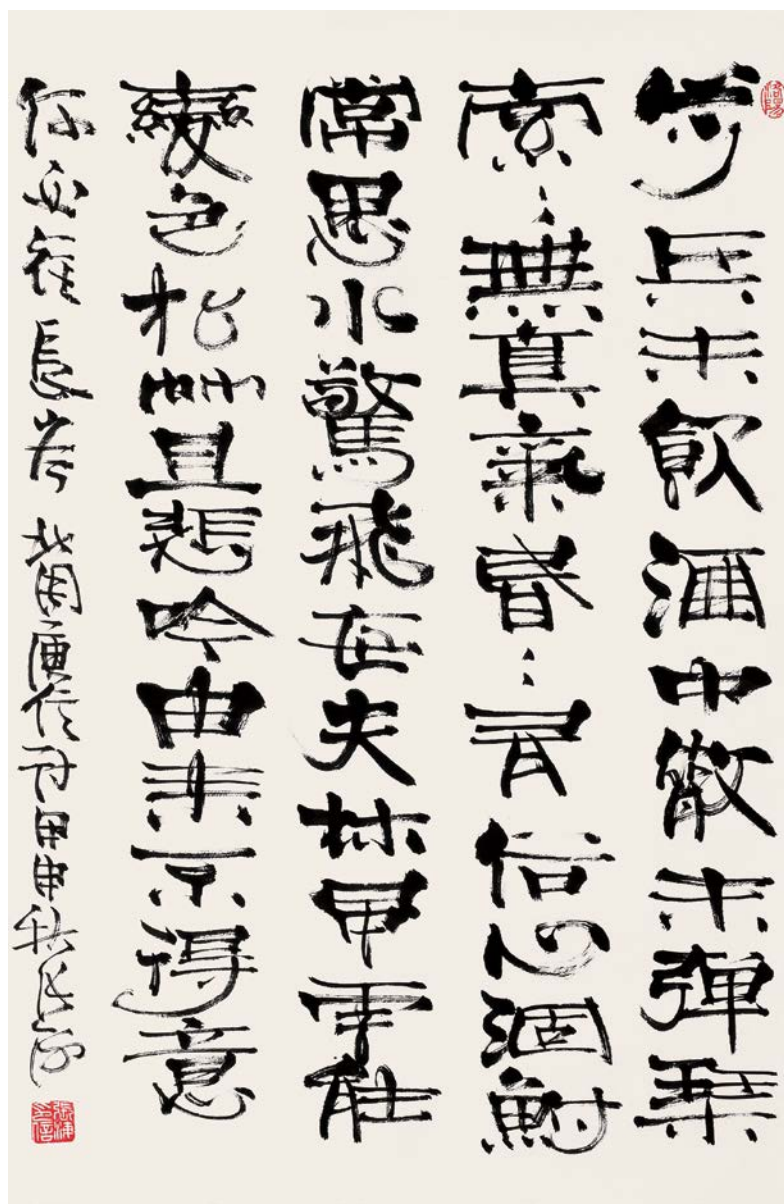 步兵未飲酒中散未彈琴
索〻無真氣昏〻有俗心涸鮒
常思水驚飛每失林風雲能
變色松竹且悲吟由來不得意
何必往長岑 北周庾信詩 甲申秋